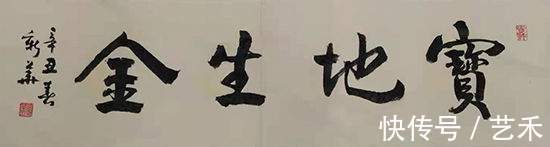 寶地生金
辛丑春
新華
快传号 / 艺禾